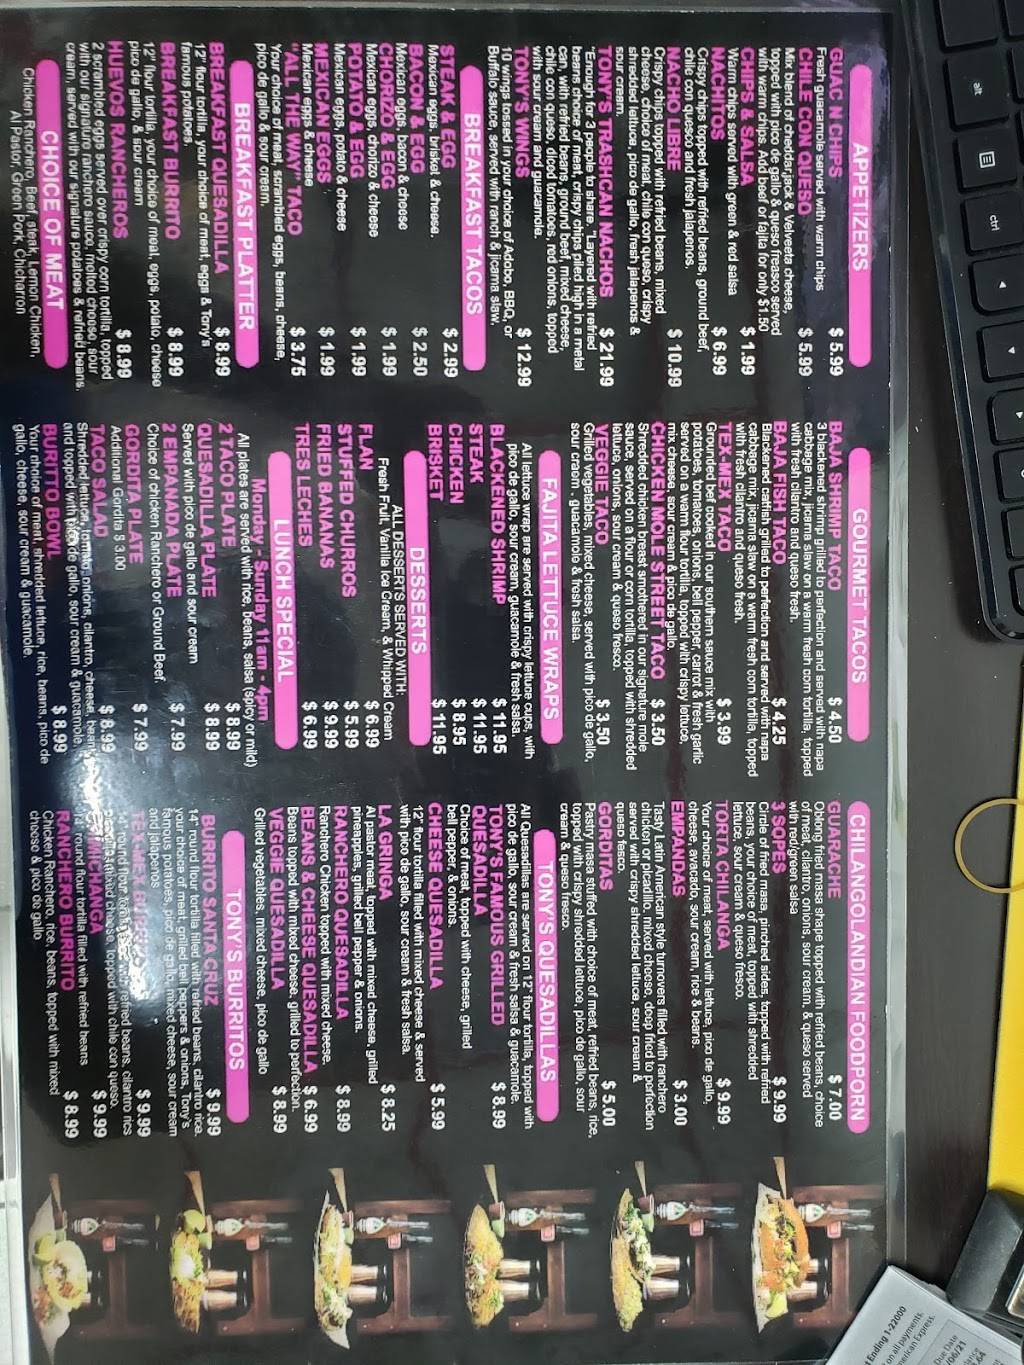 APPETIZERS
GUAC N CHIPS $ 5.99
Fresh guacamole served with warm chips
CHILE CON QUESO $ 5.99
Mix blend of cheddar,jack & Velveeta cheese,
topped with pico de gallo & queso freasco served
with warm chips. Add beef or fajita for only $1.50
CHIPS & SALSA $ 1.99
Warm chips served with green & red salsa
NACHITOS $ 6.99
Crispy chips topped with refried beans, ground beef,
chile con queso and fresh jalapenos.
NACHO LIBRE $ 10.99
Crispy chips topped with refried beans, mixed
cheese, choice of meat, chile con queso, crispy
shredded lettuce, pico de gallo, fresh jalapenos &
sour cream.
TONY'S TRASHCAN NACHOS $ 21.99
"Enough for 3 people to share. "Layered with refried
beans choice of meat, crispy chips piled high in a metal
can, with refried beans, ground beef, mixed cheese,
chile con queso, diced tomatoes, red onions, topped
with sour cream and guacamole.
TONY'S WINGS $ 12.99
10 wings tossed in your choice of Adobo, BBQ, or
Buffalo sauce, served with ranch & jicama slaw.
BREAKFAST TACOS
STEAK & EGG $ 2.99
Mexican eggs, brisket & cheese.
BACON & EGG $ 2.50
Mexican eggs, bacon & cheese
CHORIZO & EGG $ 1.99
Mexican eggs, chorizo & cheese
POTATO & EGG $ 1.99
Mexican eggs, potato & cheese
MEXICAN EGGS $ 1.99
Mexican eggs & cheese
"ALL THE WAY" TACO $ 3.75
Your choice of meat, scrambled eggs, beans, cheese,
pico de gallo & sour cream.
BREAKFAST PLATTER
BREAKFAST QUESADILLA $ 8.99
12" flour tortilla, your choice of meat, eggs & Tony's
famous potatoes.
BREAKFAST BURRITO $ 8.99
12" flour tortilla, your choice of meat, eggs, potato, cheese
pico de gallo, & sour cream
HUEVOS RANCHEROS $ 8.99
2 scrambled eggs served over crispy corn tortilla, topped
with our signature ranchero sauce, melted cheese, sour
cream, served with our signature potatoes & refried beans.
CHOICE OF MEAT
Chicken Ranchero, Beef steak, Lemon Chicken,
Al Pastor, Green Pork, Chicharron
GOURMET TACOS
BAJA SHRIMP TACO $ 4.50
3 blackened shrimp grilled to perfection and served with napa
cabbage mix, jicama slaw on a warm fresh corn tortilla, topped
with fresh cilantro and queso fresh.
BAJA FISH TACO $ 4.25
Blackened catfish grilled to perfection and served with napa
cabbage mix, jicama slaw on a warm fresh corn tortilla, topped
with fresh cilantro and queso fresh.
TEX-MEX TACO $ 3.99
Grounded bef cooked in our southern sauces mix with
potatoes, tomatoes, onions, bell pepper, carrot & fresh garlic
served on a warm flour tortilla, topped with crispy lettuce,
mix cheese, sour cream & pico de gallo.
CHICKEN MOLE STREET TACO $ 3.50
Shredded chicken breast smothered in our signature mole
sauce, served on a flour or corn tortilla, topped with shredded
lettuce, onions, sour cream & queso fresco.
VEGGIE TACO $ 3.50
Grilled vegetables, mixed cheese, served with pico de gallo,
sour cream, guacamole & fresh salsa.
FAJITA LETTUCE WRAPS
All lettuce wrap are served with crispy lettuce cups, with
pico de gallo, sour cream, guacamole & fresh salsa.
BLACKENED SHRIMP $ 11.95
STEAK $ 11.95
CHICKEN $ 8.95
BRISKET $ 11.95
DESSERTS
ALL DESSERTS SERVED WITH:
Fresh Fruit, Vanilla Ice Cream, & Whipped Cream
FLAN $ 6.99
STUFFED CHURROS $ 5.99
FRIED BANANAS $ 9.99
TRES LECHES $ 6.99
LUNCH SPECIAL
Monday - Sunday 11am - 4pm
All plates are served with rice, beans, salsa (spicy or mild)
2 TACO PLATE $ 8.99
QUESADILLA PLATE $ 8.99
Served with pico de gallo and sour cream
2 EMPANADA PLATE $ 7.99
Choice of chicken Ranchero or Ground Beef.
GORDITA PLATE $ 7.99
Additional Gordita $ 3.00
TACO SALAD $ 8.99
Shredded lettuce, tomato, onions, cilantro, cheese, beans
and topped with pico de gallo, sour cream & guacamole.
BURRITO BOWL $ 8.99
Your choice of meat, shredded lettuce, rice, beans, pico de
gallo, cheese, sour cream & guacamole.
CHILANGOLANDIAN FOODPORN
GUARACHE $ 7.00
Oblong fried masa shape topped with refried beans, choice
of meat, cilantro, onions, sour cream, & queso served
with red/green salsa
3 SOPES $ 9.99
Circle of fried masa, pinched sides, topped with refried
beans, your choice of meat, topped with shredded
lettuce, sour cream & queso fresco.
TORTA CHILANGA $ 9.99
Your choice of meat, served with lettuce, pico de gallo,
cheese, avocado, sour cream, rice & beans.
EMPANDAS $ 3.00
Tasty Latin American style turnovers filled with ranchero
chicken or picadillo, mixed cheese, deep fried to perfection
served with crispy shredded lettuce, sour cream &
queso fesco.
GORDITAS $ 5.00
Pastry masa stuffed with choice of meat, refried beans, rice,
topped with crispy shredded lettuce, pico de gallo, sour
cream & queso fresco.
TONY'S QUESADILLAS
All Quesadillas are served on 12" flour tortilla, topped with
pico de gallo, sour cream & fresh salsa & guacamole.
TONY'S FAMOUS GRILLED
QUESADILLA $ 8.99
Choice of meat, topped with cheese, grilled
bell pepper, & onions.
CHEESE QUESADILLA $ 5.99
12" flour tortilla filled with mixed cheese & served
with pico de gallo, sour cream & fresh salsa.
LA GRINGA $ 8.25
Al pastor meat, topped with mixed cheese, grilled
pineapples, grilled bell pepper & onions.
RANCHERO QUESADILLA $ 8.99
Ranchero Chicken topped with mixed cheese.
BEANS & CHEESE QUESADILLA $ 6.99
Beans topped with mixed cheese, grilled to perfection.
VEGGIE QUESADILLA $ 8.99
Grilled vegetables, mixed cheese, pico de gallo
TONY'S BURRITOS
BURRITO SANTA CRUZ $ 9.99
14" round flour tortilla filled with refried beans, cilantro rice.
your choice of meat, grilled bell peppers & onions, Tony's
famous potatoes, pico de gallo, mixed cheese, sour cream
and jalapenos
TEX-MEX $ 9.99
round flour with refried beans, cilantro rice
cheese, topped with chile con queso.
$ 9.99
round flour tortilla filled with refried beans
RANCHERO BURRITO $ 8.99
Chicken Ranchero, rice, beans, topped with mixed
cheese & pico de gallo
alt
ctrl
Ending 1-22000
on all payments.
American Express.
Due Date